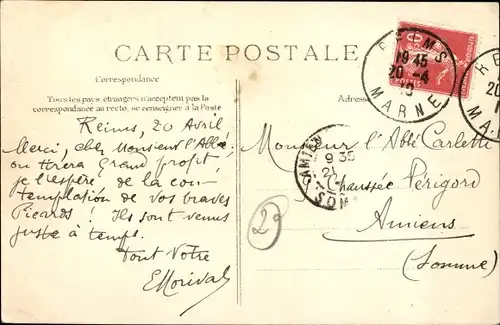 CARTE POSTALE
Correspondance
Tous les pays étrangers n'acceptent pas la
correspondance au recto, se renseigner à la Poste
Adresse
Reims, 20 Avril
Merci, cher Monsieur l'Abbé,
on tirera grand profit,
je l'espère, de la con-
templation de vos braves
Picards ! Ils sont venus
juste à temps.
Tout Vôtre
EMorival
Monsieur l'Abbé Carlette
Chaussée Périgord
Amiens
(Somme)
29
REIMS
19 45
20 -4
MARNE
AMIENS
9 35
21
SOM
RE
20
MA